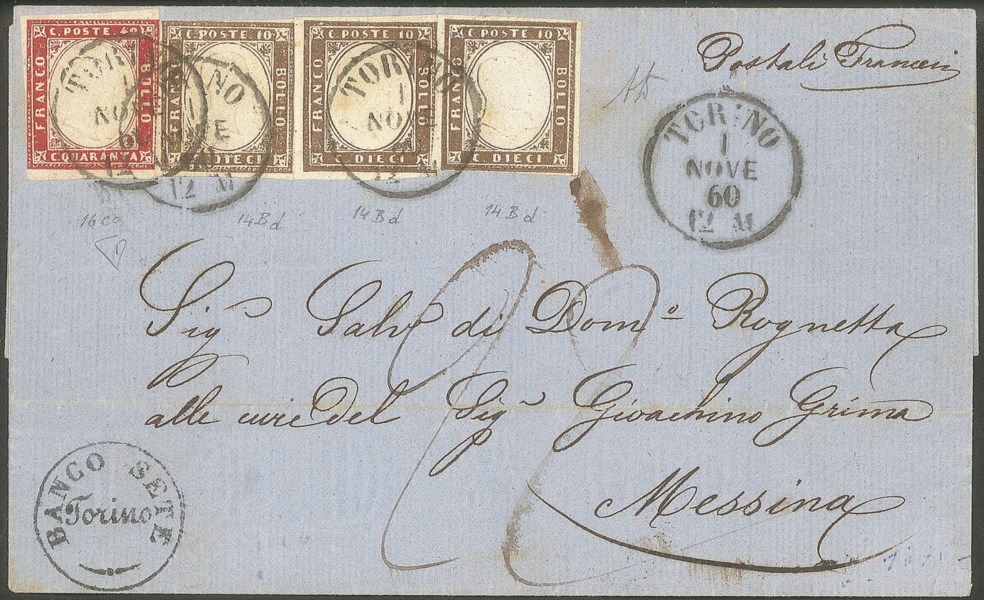 C. POSTE 40
FRANCO
BOLLO
C. QUARANTA
C. POSTE 10
FRANCO
BOLLO
C. DIECI
C. POSTE 10
FRANCO
BOLLO
C. DIECI
C. POSTE 10
FRANCO
BOLLO
C. DIECI
TORINO
1
NOVE
60
12 M
TORINO
1
NOVE
12 M
TORINO
1
NOVE
12 M
Postali Francesi
AD
TORINO
1
NOVE
60
12 M
16 Ca
14Bd
14Bd
14Bd
Sigr Salvr di Domo Rognetta
alle cure del Sigr Gioachino Grima
Messina
BANCO SETE
Torino